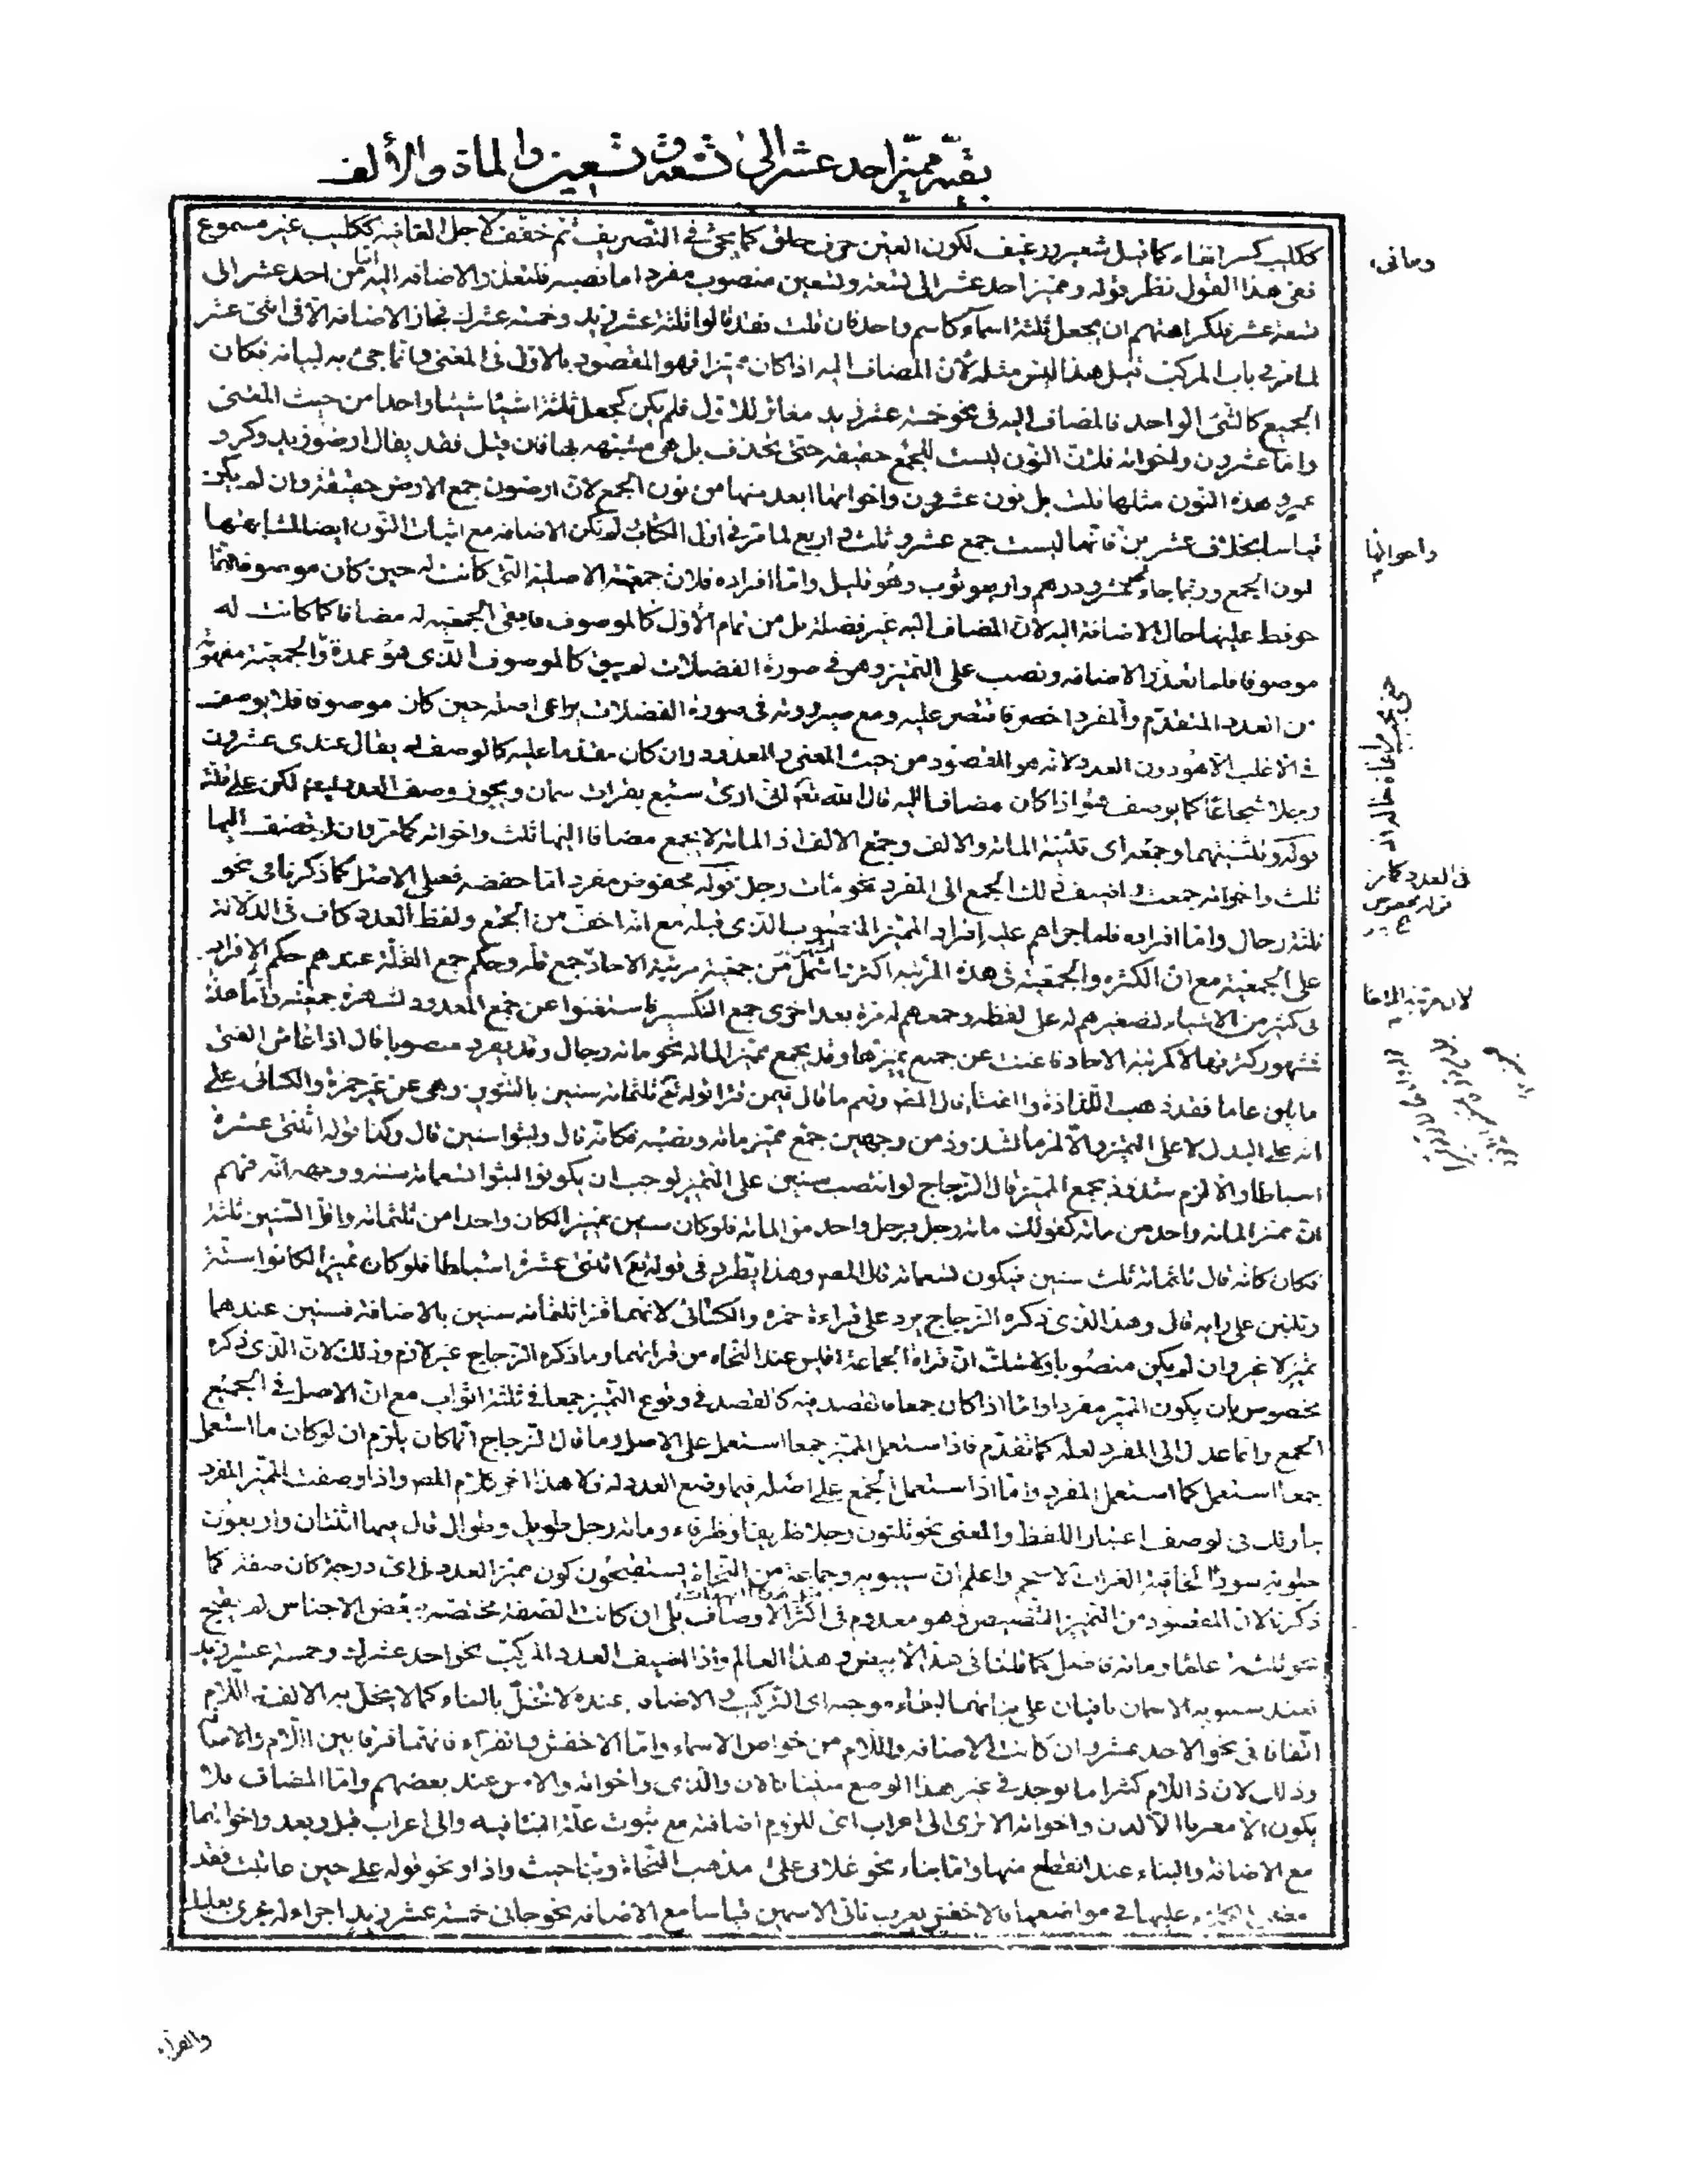 بقية مميز احد عشر الى تسعة وتسعين والمائة والألف
ككليب كسر الفاء كما قيل شعير ورغيف لكون العين حرف حلق كما يجئ في التصريف ثم خفف لاجل القافية ككليب غير مسموع
ففى هذا القول نظر قوله ومميز احد عشر الى تسعة وتسعين منصوب مفرد اما نصبه فلتعذر الاضافة اليه اما من احد عشر الى
تسعة عشر فلكراهتهم ان يجعل ثلثة اسماء كاسم واحد فان قلت فقد قالوا ثلثة عشر زيد وخمسة عشرك فجاز الاضافة الا فى اثنى عشر
لما مر في باب المركب قيل هذا ليس مثله لأن المضاف اليه اذا كان مميزا فهو المقصود بالاول فى المعنى وانما جئ به لبيانه فكان
الجميع كالشئ الواحد فالمضاف اليه فى نحو خمسة عشر زيد مغائر للاول فلم يكن كجعل ثلثة اشيا شيئا واحدا من حيث المعنى
واما عشرون واخواته فلان النون ليست للجمع حقيقة حتى يحذف بل هى مشبهة بها فان قيل فقد يقال ارضو زيد وكرو
عمرو وهذه النون مثلها قلت بل نون عشرون واخواتها ابعد منها من نون الجمع لان ارضون جمع الارض حقيقة وان لم يكن
قياسا بخلاف عشرين فانها ليست جمع عشر وثلث واربع لما مر في اول الكتاب لم يكن الاضافة مع اثبات النون ايضا لمشابهتها
لنون الجمع وربما جاء عشرو درهم واربعو ثوب وهو قليل واما افراده فلان جمعيته الاصلية التى كانت له حين كان موصوفا انما
حوفظ عليها حال الاضافة اليه لان المضاف اليه غير فضلة بل من تمام الأول كالموصوف فابقى الجمعية له مضافا كما كانت له
موصوفا فلما تعذر الاضافة ونصب على التمييز وهو في صورة الفضلات لم يبق كالموصوف الذى هو عمدة والجمعية مفهومة
من العدد المتقدم والمفرد اخصر فاقتصر عليه ومع صيرورته فى صورة الفضلات يراعى اصله حين كان موصوفا فلا يوصف
في الاغلب الا هو دون العدد لانه هو المقصود من حيث المعنى والمعدود وان كان مقدما عليه كالوصف له يقال عندى عشرون
رجلا شجاعا كما يوصف هو اذا كان مضافا اليه قال الله تع انى ارى سبع بقرات سمان ويجوز وصف العدد ايضا لكن على قلة
قوله وتثنيتهما وجمعه اى تثنية المائة والالف وجمع الالف اذ المائة لا يجمع مضافا اليها ثلث واخواته كما مر وان لم يضف اليها
ثلث واخواته جمعت واضيف ذلك الجمع الى المفرد نحو مئات رجل قوله مخفوض مفرد اما خفضه فعلى الاصل كما ذكرنا فى نحو
ثلثة رجال واما افراده فلما جراهم عليه افراد المميز المنصوب الذى قبله مع انه اخف من الجمع ولفظ العدد كاف فى الدلالة
على الجمعية مع ان الكثرة والجمعية فى هذه المرتبة اكثر واشهر من جمعية مرتبة الاحاد جمع قلة وحكم جمع القلة عندهم حكم الافراد
فى كثير من الاشياء لتصغيرهم له على لفظه وجمعهم له مرة بعد اخرى جمع التكسير فاستغنوا عن جمع المعدود لشهرة جمعيته واما هذه
فشهور كثرتها لا كمرتبة الاحاد فاغنت عن جميع مميزها وقد يجمع مميز المائة نحو مائة رجال وقد يفرد منصوبا قال اذا عاش الفتى
مايتين عاما فقد ذهب اللذاذة والفتاء قال المص ونعم ما قال فيمن قرأ قوله تع ثلثمائة سنين بالتنوين وهى عن غير حمزة والكسائى على
انه على البدل لا على التمييز والا لزم الشذوذ من وجهين جمع مميز مائة ونصبه فكانه قال ولبثوا سنين قال وكذا قوله اثنتى عشرة
اسباطا والا لزم شذوذ بجمع المميز قال الزجاج لو انتصب سنين على التمييز لوجب ان يكونوا لبثوا تسعمائة سنة ووجهه انه فهم
ان مميز المائة واحد من مائة كقولك مائة رجل فرجل واحد من المائة فلو كان سنين تمييزا لكان واحدا من ثلثمائة واقل السنين ثلثة
فكان كانه قال ثلثمائة ثلث سنين فيكون تسعمائة قال المص وهذا يطرد فى قوله تع اثنتى عشرة اسباطا فلو كان تمييزا لكانوا ستة
وثلثين على رايه قال وهذا الذى ذكره الزجاج يرد على قراءة حمزة والكسائى لانهما قرءا ثلثمائة سنين بالاضافة فسنين عندهما
تمييز لا غير وان لم يكن منصوبا ولا شك ان قراءة الجماعة اقيس عند النحاة من قرأتهما وما ذكره الزجاج غير لازم وذلك لان الذى ذكره
مخصوص بان يكون المميز مفردا واما اذا كان جمعا فالقصد فيه كالقصد فى وقوع التمييز جمعا في ثلثة اثواب مع ان الاصل في الجميع
الجمع وانما عدل الى المفرد لعلة كما تقدم فاذا استعمل المميز جمعا استعمل على الاصل وما قال الزجاج انما كان يلزم ان لو كان ما استعمل
جمعا استعمل كما استعمل المفرد واما اذا استعمل الجمع على اصله فيما وضع العدد له فلا هذا اخر كلام المص واذا وصفت المميز المفرد
جاز لك فى الوصف اعتبار اللفظ والمعنى نحو ثلثون رجلا ظريفا وظرفاء ومائة رجل طويل وطوال قال فيها اثنتان واربعون
حلوبة سودا كخافية الغراب الاسحم واعلم ان سيبويه وجماعة من النحاة يستقبحون كون مميز العدد فى اى درجة كان صفة كما
ذكرنا لان المقصود من التمييز التنصيص وهو معدوم فى اكثر الاوصاف بلى ان كانت الصفة مختصة ببعض الاجناس لم يقبح
نحو ثلثة عالما ومائة فاضل كما قلنا فى هذا الأبيض وهذا العالم واذا اضيف العدد المركب نحو احد عشرك وخمسة عشر زيد
فعند سيبويه الاسمان باقيان على بنائهما لبقاء موجبه اى التركيب والاضافة عنده لا تخل بالبناء كما لا يخل به الالف واللام
اتفاقا فى نحو الاحد عشر وان كانت الاضافة واللام من خواص الاسماء واما الاخفش والفراء فانهما فرقا بين اللام والاضافة
وذلك لان ذا اللام كثيرا ما يوجد في غير هذا الموضع مبنيا كالان والذى واخواته والامس عند بعضهم واما المضاف فلا
يكون الا معربا الا لدن واخواته الا ترى الى اعراب اى للزوم اضافته مع ثبوت علة البناء فيه والى اعراب قبل وبعد واخواتهما
مع الاضافة والبناء عند القطع منها واما بناء نحو غلامى على مذهب النحاة وبنا حيث واذا ونحو قوله على حين عاتبت فقد
عليها في مواضعها فالاخفش يعرب ثانى الاسمين قياسا مع الاضافة نحو جانى خمسة عشر زيد اجراء له مجرى بعلبك
واخواتها
فى العدد كما مر
قوله مخفوض
والفراء